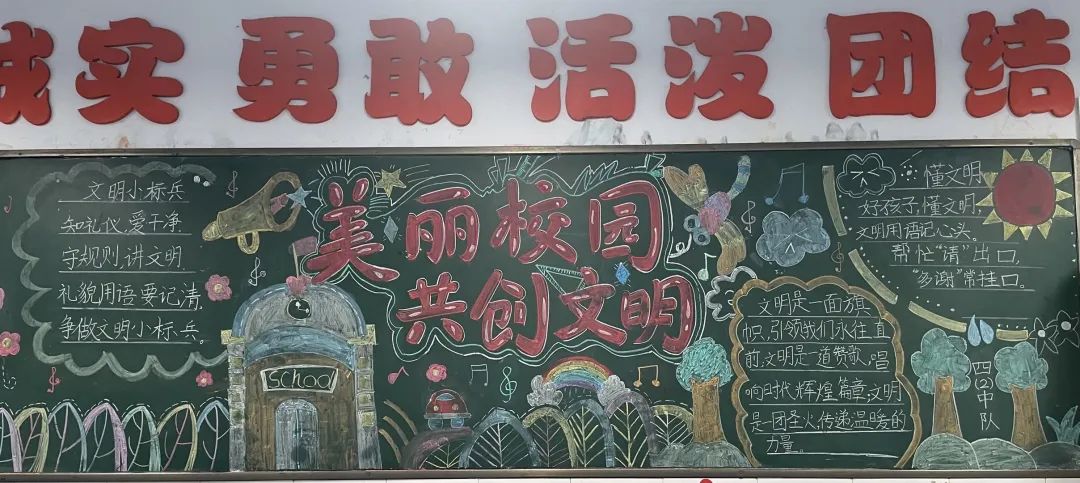 诚实 勇敢 活泼 团结
文明小标兵
知礼仪,爱干净
守规则,讲文明
礼貌用语要记清,
争做文明小标兵。
美丽校园
共创文明
School
文明是一面旗
帜,引领我们永往直
前,文明是一道赞歌,唱
响时代辉煌篇章,文明
是一团圣火,传递温暖的
力量。
懂文明
好孩子,懂文明,
文明用语记心头。
帮忙“请”出口,
“多谢”常挂口。
四(2)中队